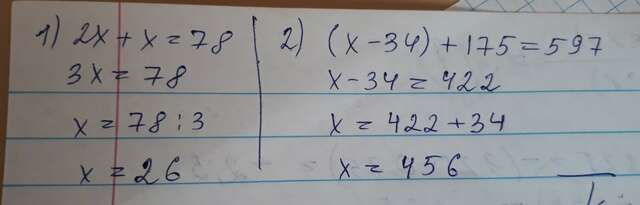 1) 2x + x = 78
3x = 78
x = 78 : 3
x = 26
2) (x - 34) + 175 = 597
x - 34 = 422
x = 422 + 34
x = 456